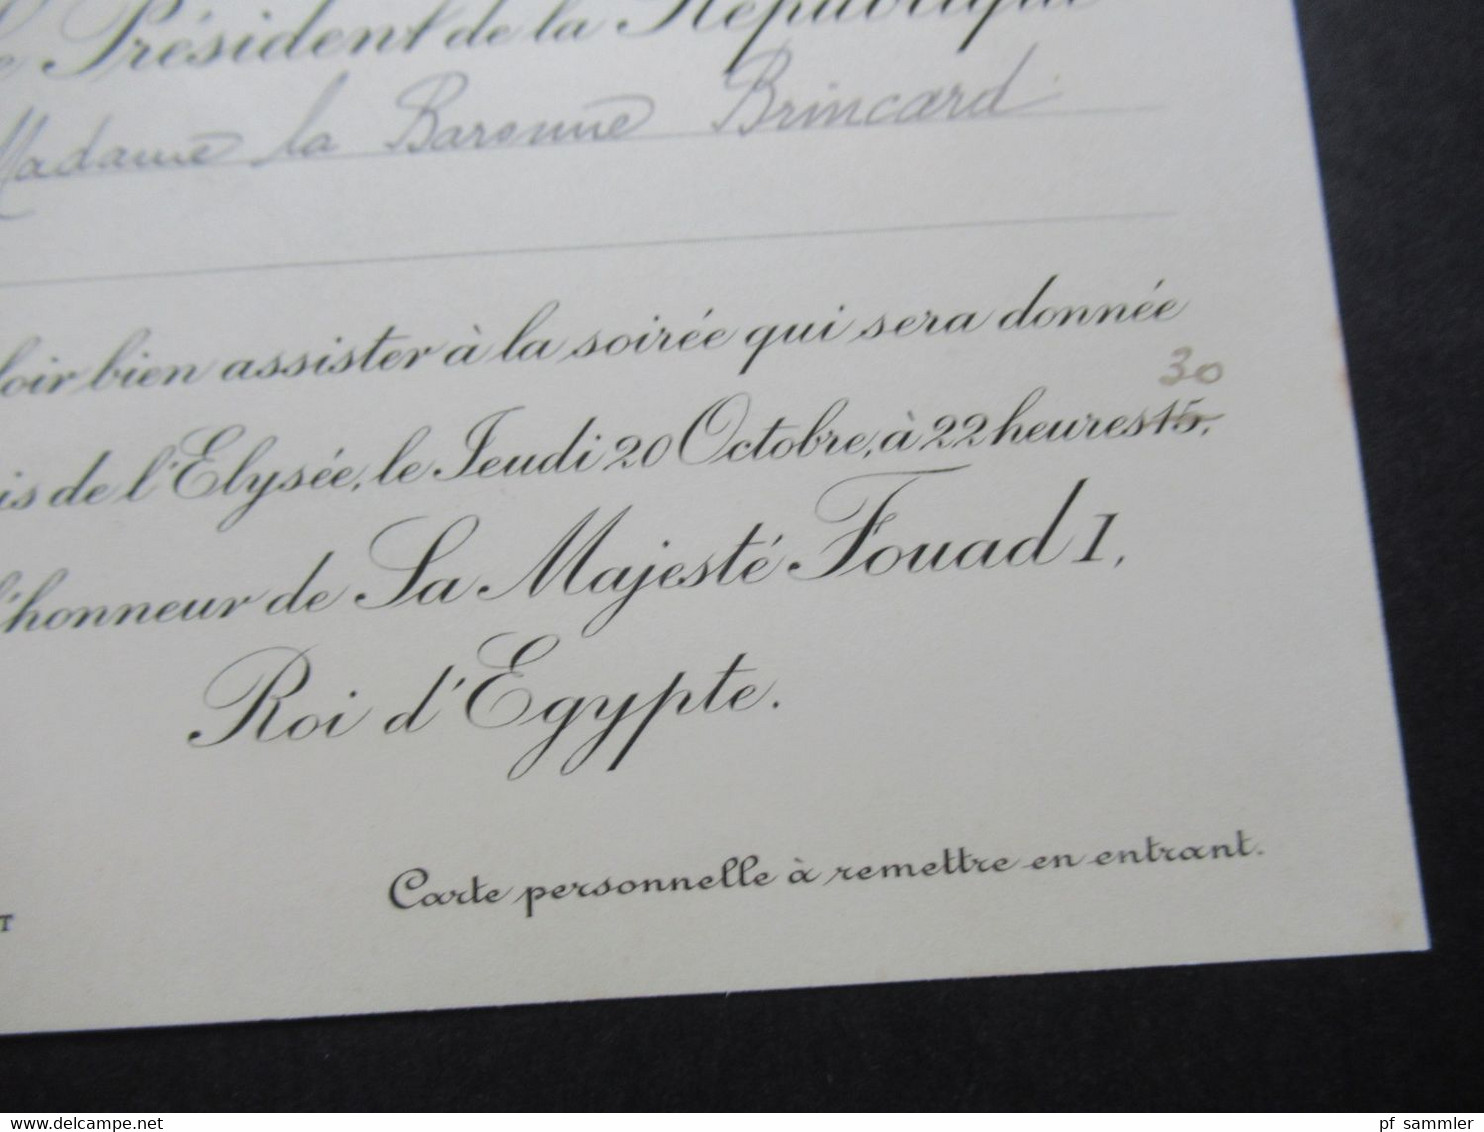 Président de la République
Madame la Baronne Brincard
loir bien assister à la soirée qui sera donnée
30
is de l'Elysée, le Jeudi 20 Octobre, à 22 heures 15,
l'honneur de Sa Majesté Fouad I,
Roi d'Egypte.
Carte personnelle à remettre en entrant.
T
delcampe.net
pf_sammler